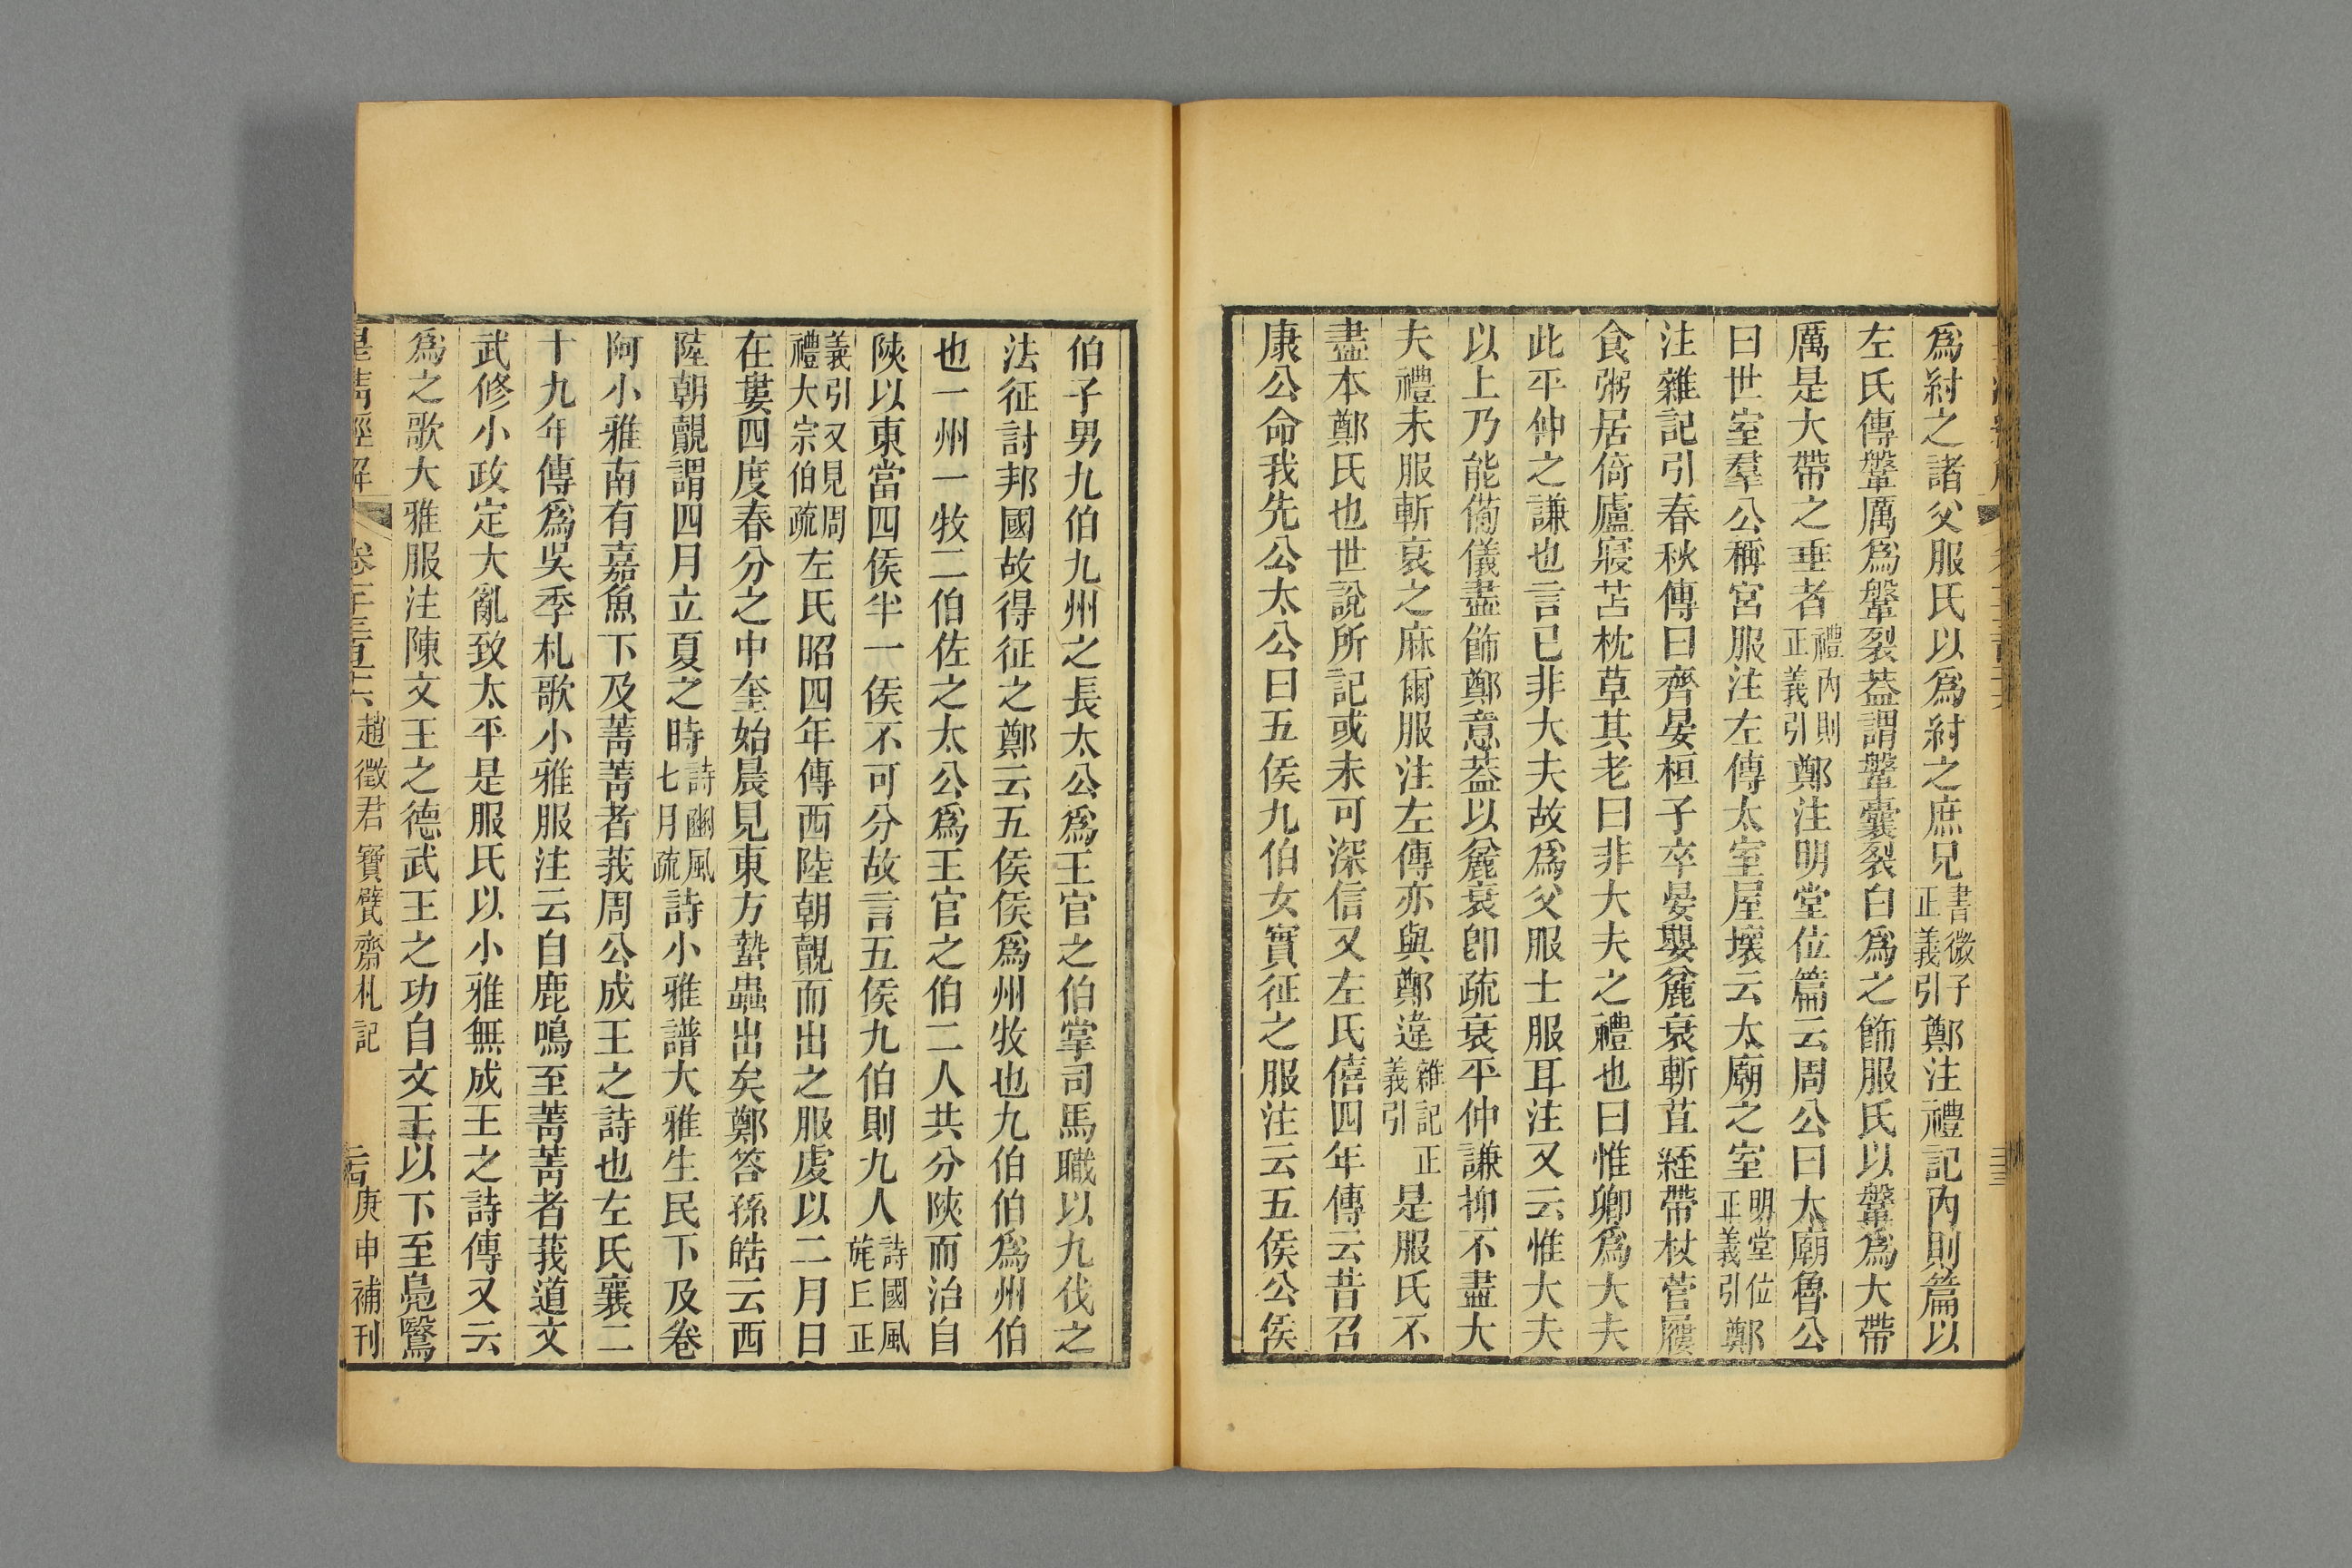 爲紂之諸父服氏以爲紂之庶兄書微子正義引鄭注禮記內則篇以
左氏傳鞶厲爲鞶裂蓋謂鞶囊裂白爲之飾服氏以鞶爲大帶
厲是大帶之垂者禮內則正義引鄭注明堂位篇云周公曰太廟魯公
曰世室羣公稱宮服注左傳太室屋壞云太廟之室明堂位正義引鄭
注雜記引春秋傳曰齊晏桓子卒晏嬰麄衰斬苴絰帶杖菅屨
食粥居倚廬寢苫枕草其老曰非大夫之禮也曰惟卿爲大夫
此平仲之謙也言己非大夫故爲父服士服耳注又云惟大夫
以上乃能備儀盡飾鄭意蓋以麄衰卽疏衰平仲謙抑不盡大
夫禮未服斬衰之麻爾服注左傳亦與鄭違雜記正義引是服氏不
盡本鄭氏也世說所記或未可深信又左氏僖四年傳云昔召
康公命我先公太公曰五侯九伯女實征之服注云五侯公侯
伯子男九伯九州之長太公爲王官之伯掌司馬職以九伐之
法征討邦國故得征之鄭云五侯侯爲州牧也九伯伯爲州伯
也一州一牧二伯佐之太公爲王官之伯二人共分陝而治自
陝以東當四侯半一侯不可分故言五侯九伯則九人詩國風旄丘正
義引又見周禮大宗伯疏左氏昭四年傳西陸朝覿而出之服虔以二月日
在婁四度春分之中奎始晨見東方蟄蟲出矣鄭答孫皓云西
陸朝覿謂四月立夏之時詩豳風七月疏詩小雅譜大雅生民下及卷
阿小雅南有嘉魚下及菁菁者莪周公成王之詩也左氏襄二
十九年傳爲吳季札歌小雅服注云自鹿鳴至菁菁者莪道文
武修小政定大亂致太平是服氏以小雅無成王之詩傳又云
爲之歌大雅服注陳文王之德武王之功自文王以下至鳧鷖
皇清經解 卷一千三百十六 趙徵君寶甓齋札記 庚申補刊